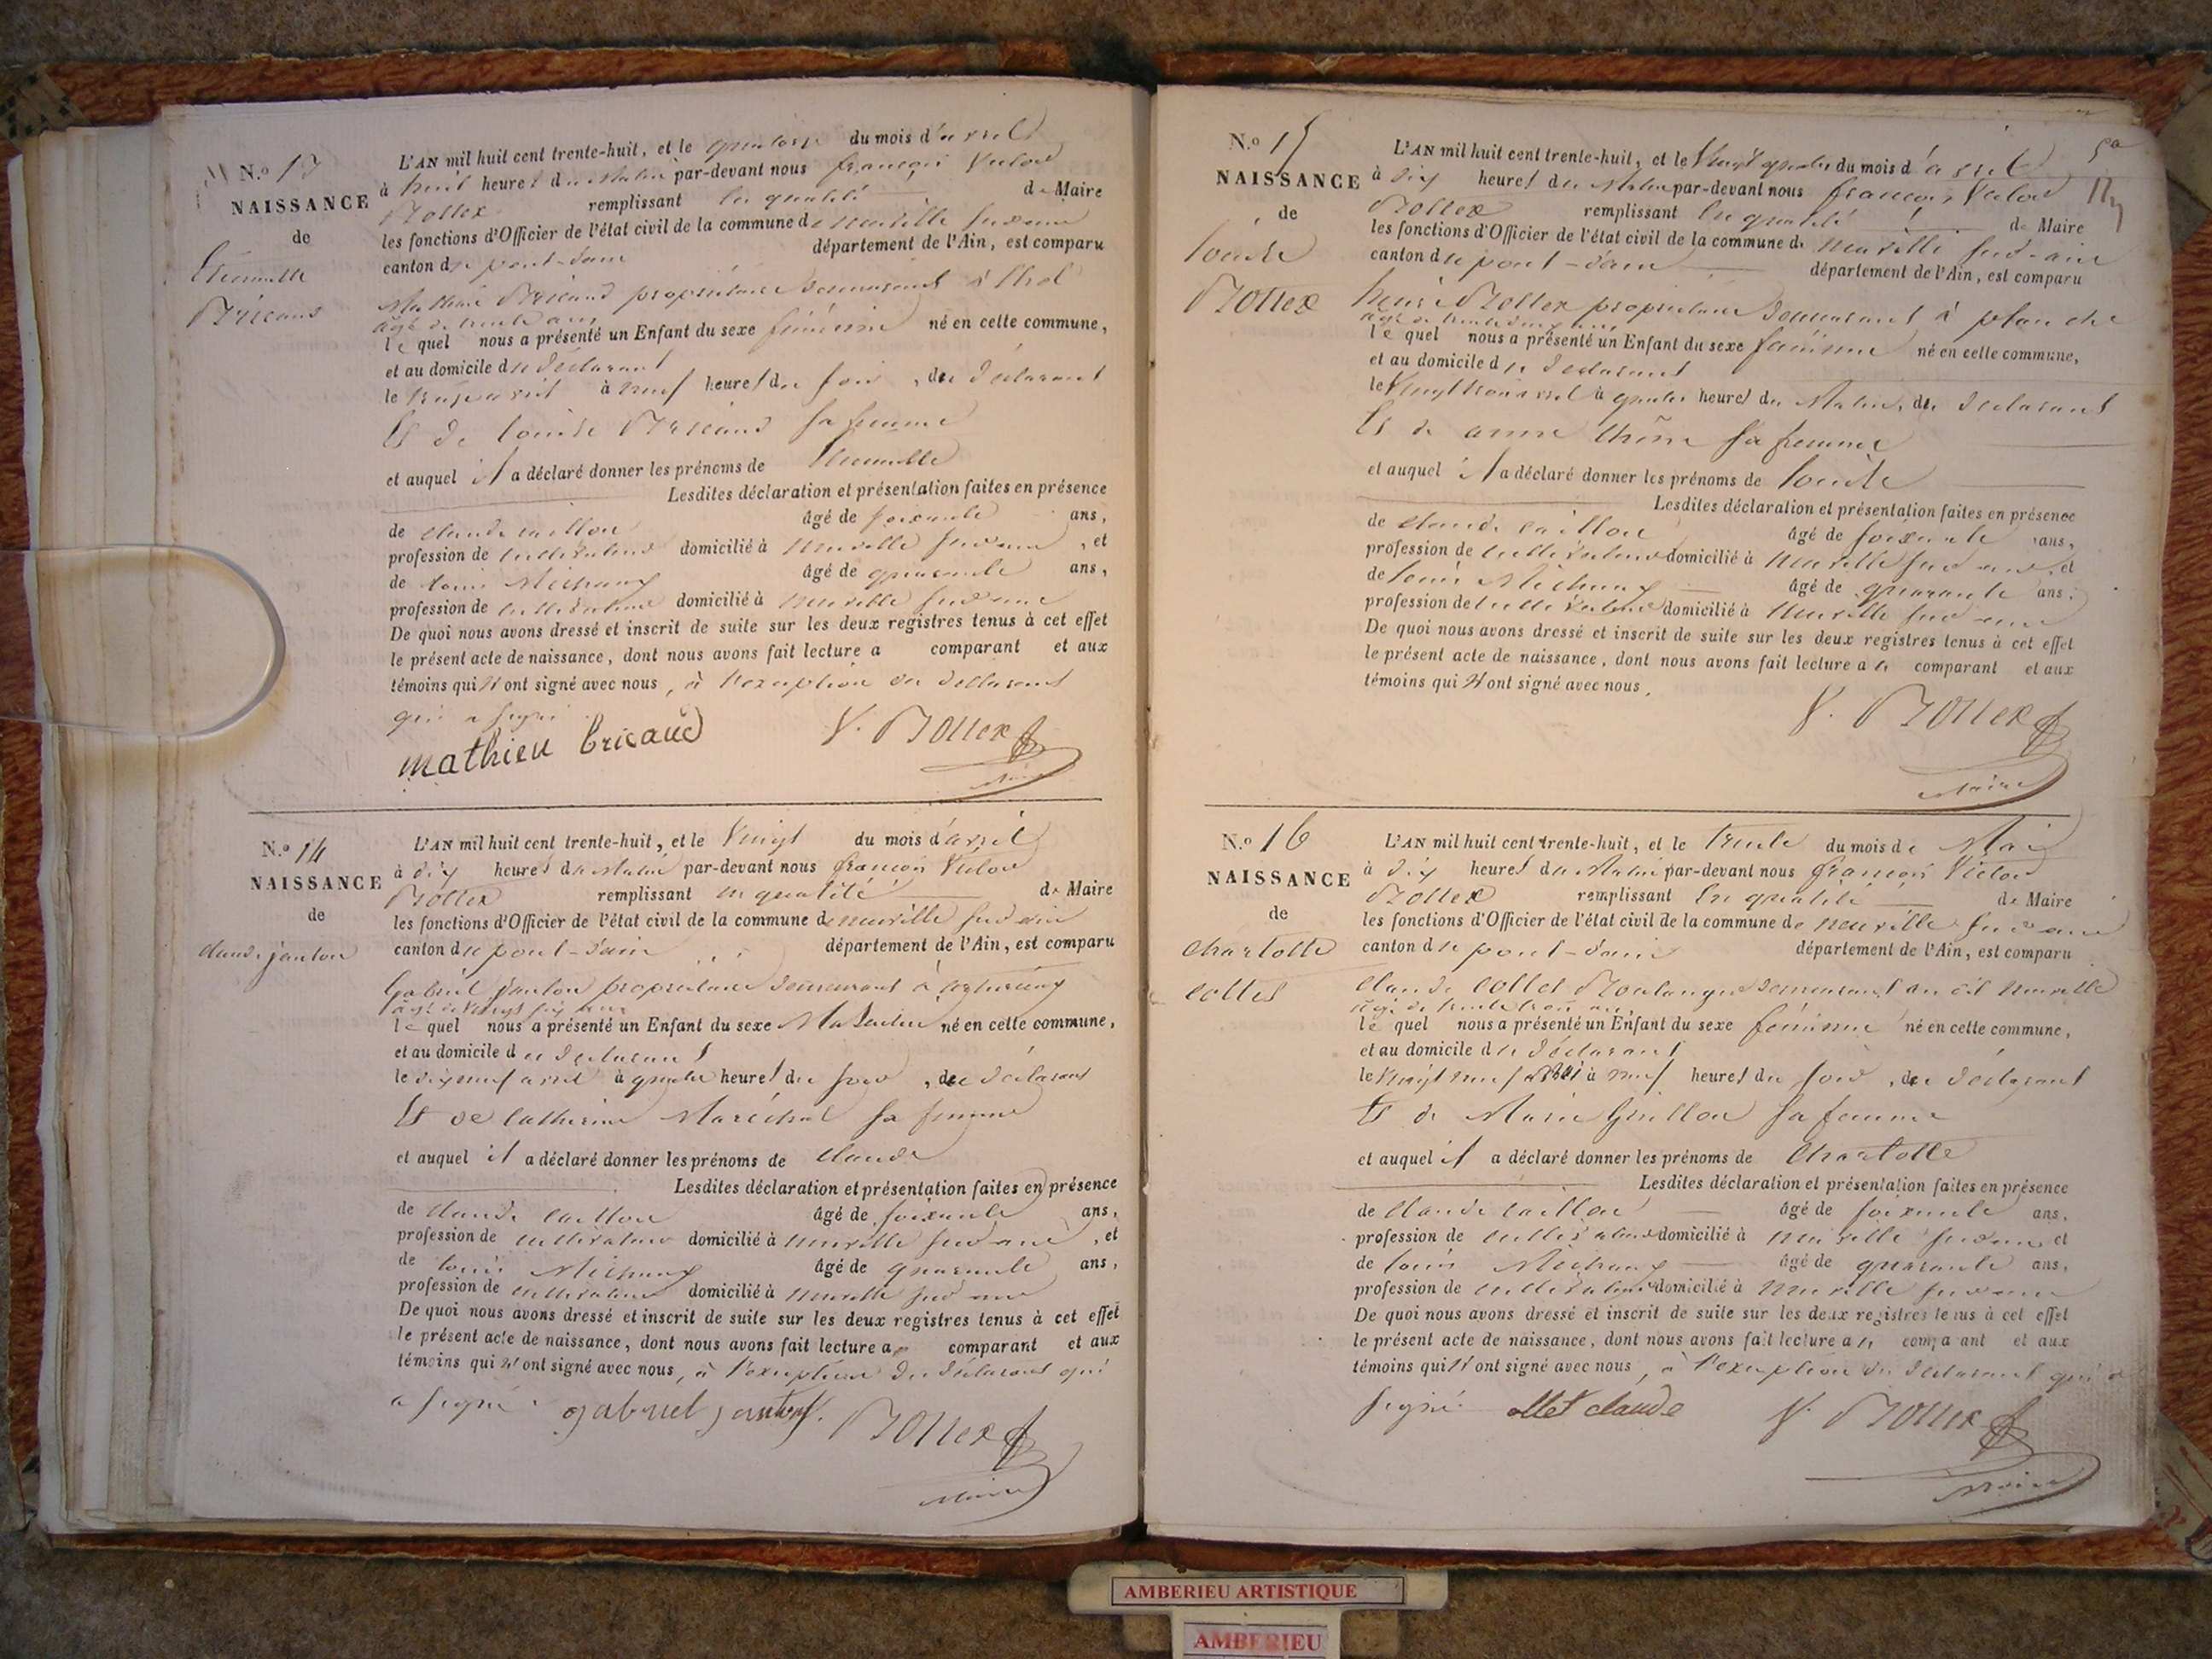 N.o 13
NAISSANCE
de
Bricaud
L'AN mil huit cent trente-huit, et le quatorze du mois d'avril
à huit heures du Matin par-devant nous françois Victor
Bollex remplissant en qualité de Maire
les fonctions d'Officier de l'état civil de la commune de neuville sur ain
canton de pont-d'ain département de l'Ain, est comparu
Mathieu Bricaud propriétaire demeurant à thol
âgé de trente ans
le quel nous a présenté un Enfant du sexe féminin né en cette commune,
et au domicile du déclarant
le treize avril à neuf heures du soir, du déclarant
Et de louise Bricaud sa femme
et auquel il a déclaré donner les prénoms de
Lesdites déclaration et présentation faites en présence
de claude caillon âgé de soixante ans,
profession de cultivateur domicilié à neuville sur ain, et
de louis Michaux âgé de quarante ans,
profession de cultivateur domicilié à neuville sur ain
De quoi nous avons dressé et inscrit de suite sur les deux registres tenus à cet effet
le présent acte de naissance, dont nous avons fait lecture a comparant et aux
témoins qui n'ont signé avec nous, à l'exception du déclarant
qui a signé
mathieu bricaud V. Bollex
Maire
N.o 14
NAISSANCE
de
claude janton
L'AN mil huit cent trente-huit, et le Vingt du mois d'avril
à dix heures du Matin par-devant nous françois Victor
Bollex remplissant en qualité de Maire
les fonctions d'Officier de l'état civil de la commune de neuville sur ain
canton de pont-d'ain département de l'Ain, est comparu
Gabriel janton propriétaire demeurant à
âgé de vingt six ans
le quel nous a présenté un Enfant du sexe Masculin né en cette commune,
et au domicile du déclarant
le dixneuf avril à quatre heures du soir, du déclarant
Et de Catherine Maréchal sa femme
et auquel il a déclaré donner les prénoms de claude
Lesdites déclaration et présentation faites en présence
de claude caillon âgé de soixante ans,
profession de cultivateur domicilié à neuville sur ain, et
de louis Michaux âgé de quarante ans,
profession de cultivateur domicilié à neuville sur ain
De quoi nous avons dressé et inscrit de suite sur les deux registres tenus à cet effet
le présent acte de naissance, dont nous avons fait lecture a comparant et aux
témoins qui n'ont signé avec nous, à l'exception du déclarant qui
a signé. gabriel janton V. Bollex
Maire
N.o 15
NAISSANCE
de
louise
Bollex
L'AN mil huit cent trente-huit, et le Vingt quatre du mois d'avril
à dix heures du Matin par-devant nous françois Victor
Bollex remplissant en qualité de Maire
les fonctions d'Officier de l'état civil de la commune de neuville sur ain
canton de pont-d'ain département de l'Ain, est comparu
henri Bollex propriétaire demeurant à planche
âgé de trente deux ans
le quel nous a présenté un Enfant du sexe féminin né en cette commune,
et au domicile du déclarant
le Vingt trois avril à quatre heures du Matin, du déclarant
Et de anne sa femme
et auquel il a déclaré donner les prénoms de louise
Lesdites déclaration et présentation faites en présence
de claude caillon âgé de soixante ans,
profession de cultivateur domicilié à neuville sur ain, et
de louis Michaux âgé de quarante ans,
profession de cultivateur domicilié à neuville sur ain
De quoi nous avons dressé et inscrit de suite sur les deux registres tenus à cet effet
le présent acte de naissance, dont nous avons fait lecture a comparant et aux
témoins qui n'ont signé avec nous.
V. Bollex
Maire
N.o 16
NAISSANCE
de
charlotte
collet
L'AN mil huit cent trente-huit, et le trente du mois de Mai
à dix heures du Matin par-devant nous françois Victor
Bollex remplissant en qualité de Maire
les fonctions d'Officier de l'état civil de la commune de neuville sur ain
canton de pont-d'ain département de l'Ain, est comparu
claude collet Boulanger demeurant au dit neuville
âgé de trente trois ans
le quel nous a présenté un Enfant du sexe féminin né en cette commune,
et au domicile du déclarant
le Vingt neuf à neuf heures du soir, du déclarant
Et de Marie Guillon sa femme
et auquel il a déclaré donner les prénoms de Charlotte
Lesdites déclaration et présentation faites en présence
de claude caillon âgé de soixante ans,
profession de cultivateur domicilié à neuville sur ain et
de louis Michaux âgé de quarante ans,
profession de cultivateur domicilié à neuville sur ain
De quoi nous avons dressé et inscrit de suite sur les deux registres tenus à cet effet
le présent acte de naissance, dont nous avons fait lecture a comparant et aux
témoins qui n'ont signé avec nous, à l'exception du déclarant qui a
signé. collet claude V. Bollex
Maire
AMBERIEU ARTISTIQUE
AMBERIEU